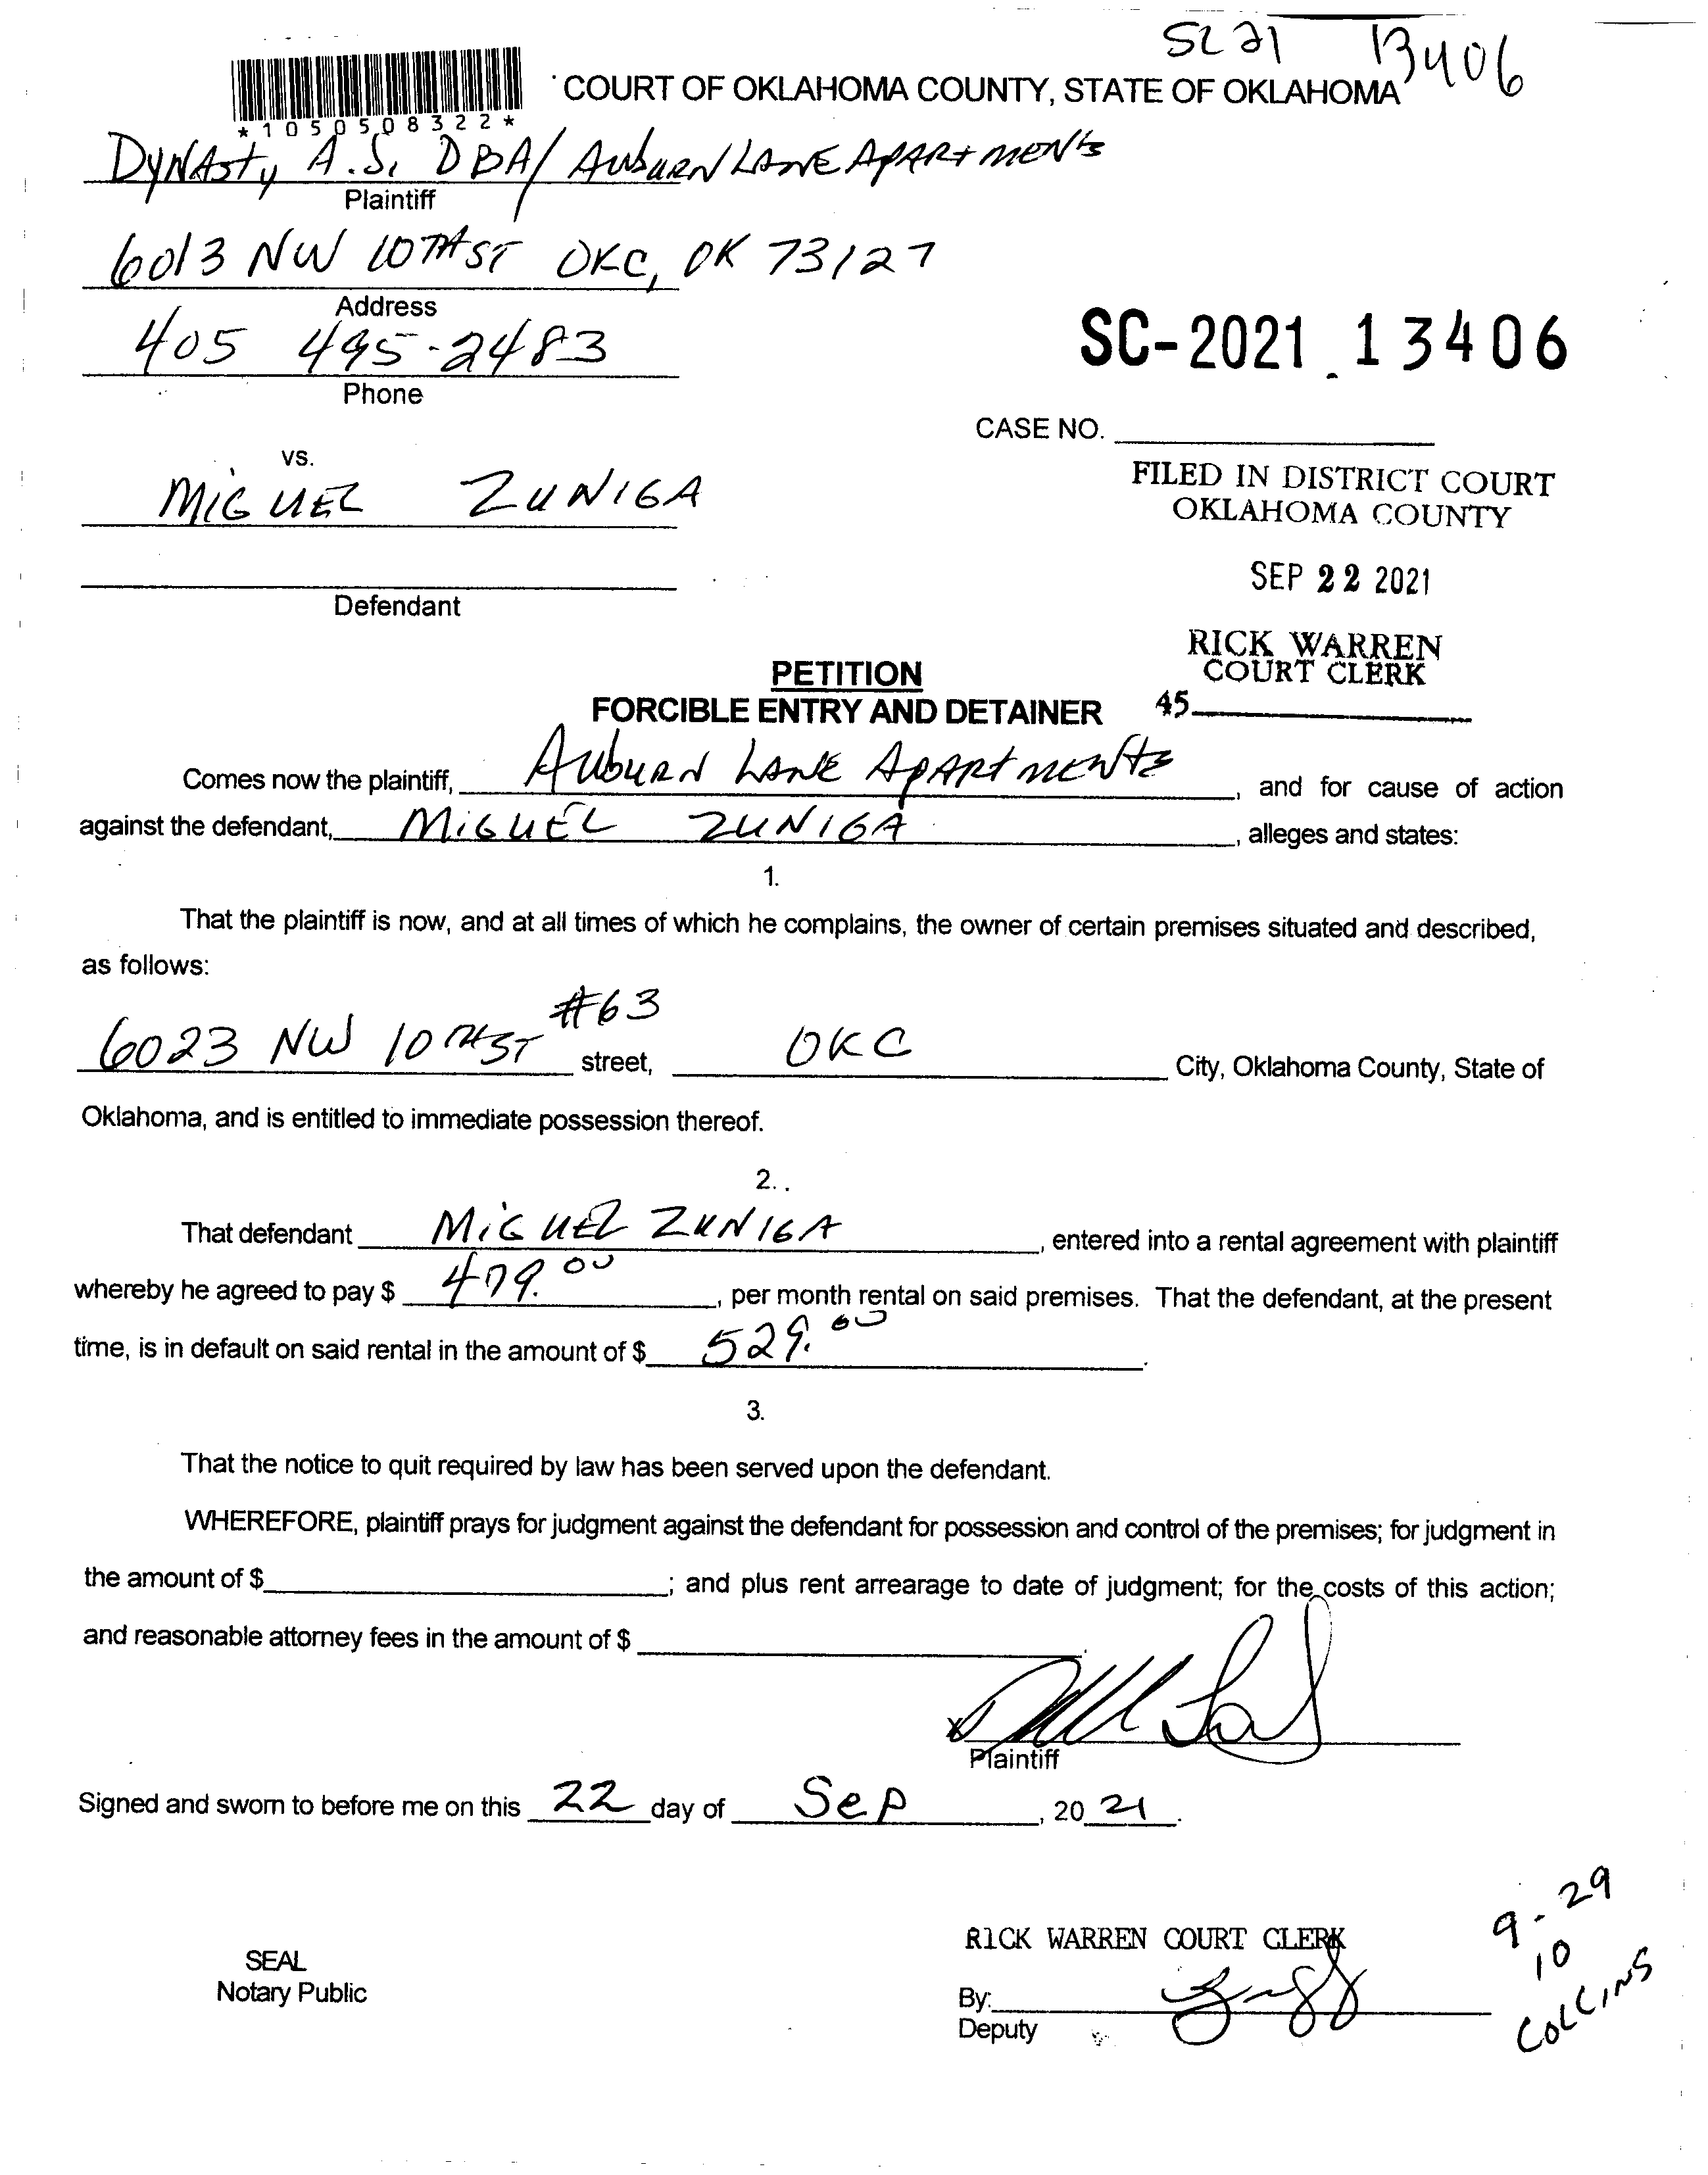 SC 21 13406
COURT OF OKLAHOMA COUNTY, STATE OF OKLAHOMA
*1050508322*
DYNAsty A.S. DBA/ AUBURN LANE APARtMENts
Plaintiff
6013 NW 10TH ST OKC, OK 73127
Address
405 495-2483
Phone
SC-2021 13406
CASE NO.
vs.
MIGUEL ZUNIGA
FILED IN DISTRICT COURT
OKLAHOMA COUNTY
SEP 22 2021
Defendant
RICK WARREN
COURT CLERK
45
PETITION
FORCIBLE ENTRY AND DETAINER
Comes now the plaintiff, AUbURN LANE APARtMENts, and for cause of action
against the defendant, MIGUEL ZUNIGA, alleges and states:
1.
That the plaintiff is now, and at all times of which he complains, the owner of certain premises situated and described,
as follows:
6023 NW 10TH ST #63 street, OKC City, Oklahoma County, State of
Oklahoma, and is entitled to immediate possession thereof.
2.
That defendant MIGUEL ZUNIGA, entered into a rental agreement with plaintiff
whereby he agreed to pay $ 479.00, per month rental on said premises. That the defendant, at the present
time, is in default on said rental in the amount of $ 529.00.
3.
That the notice to quit required by law has been served upon the defendant.
WHEREFORE, plaintiff prays for judgment against the defendant for possession and control of the premises; for judgment in
the amount of $ ; and plus rent arrearage to date of judgment; for the costs of this action;
and reasonable attorney fees in the amount of $ .
X
Plaintiff
Signed and sworn to before me on this 22 day of Sep, 20 21.
9-29
10
COLLINS
RICK WARREN COURT CLERK
SEAL
Notary Public
By:
Deputy